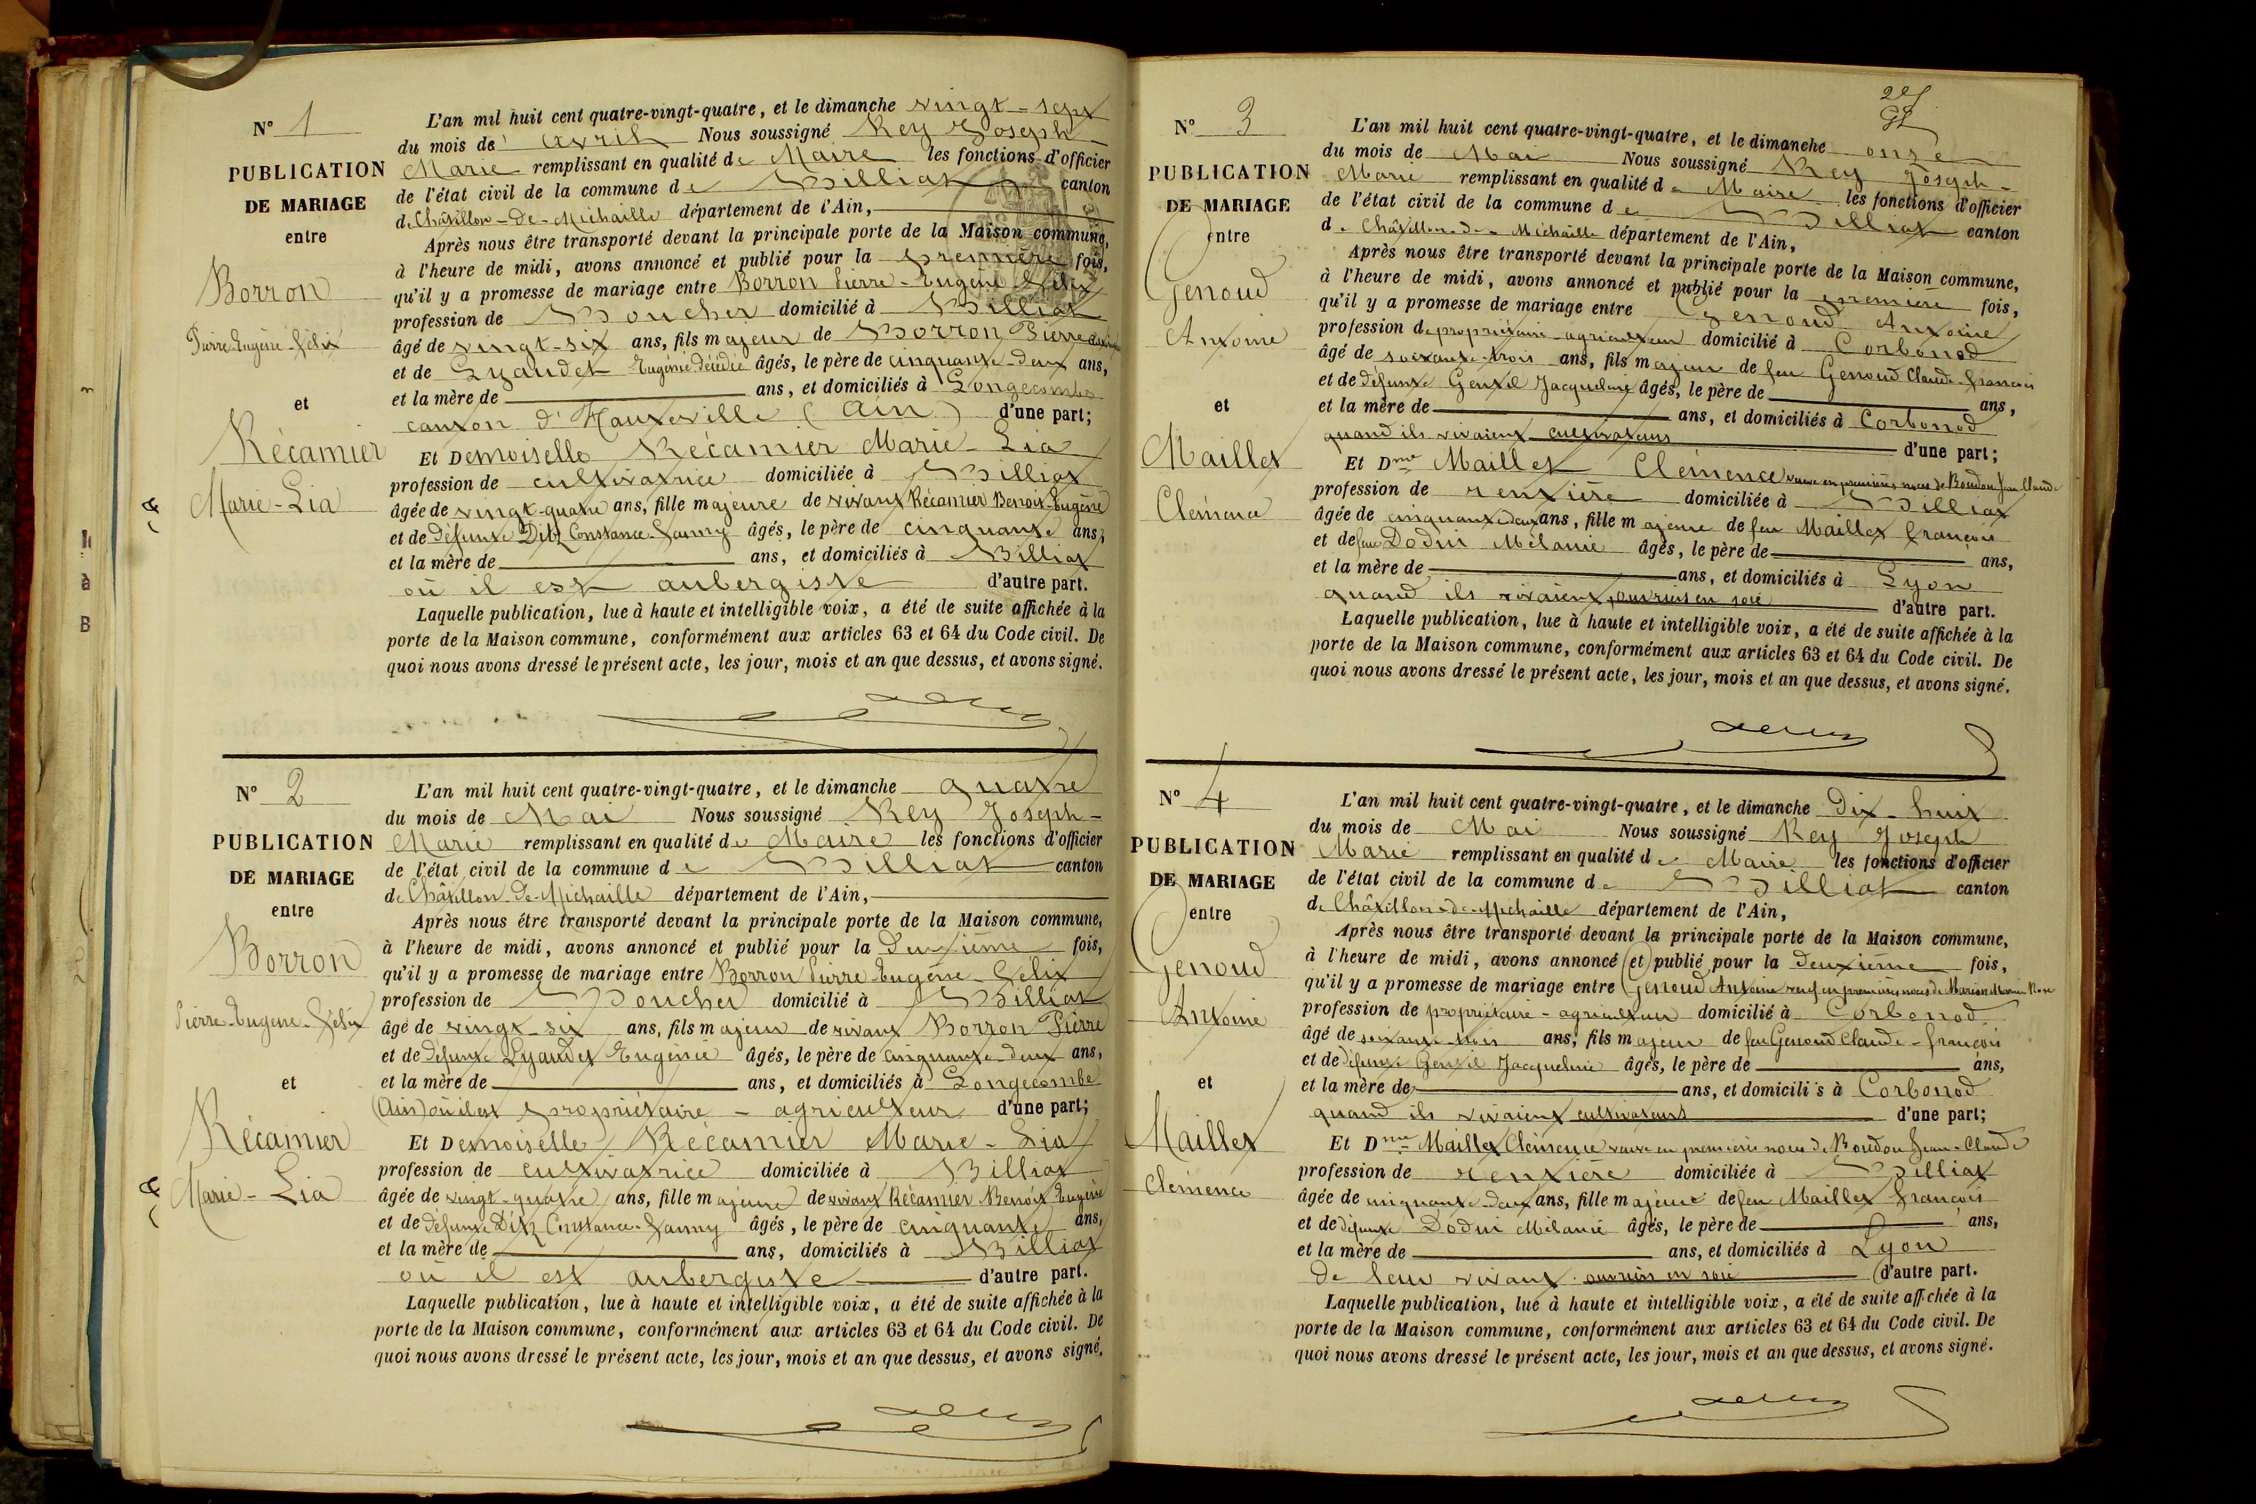 N° 1
PUBLICATION
DE MARIAGE
entre
Borron
Pierre-Eugène-Félix
et
Récamier
Marie-Lia
L'an mil huit cent quatre-vingt-quatre, et le dimanche vingt-sept
du mois de avril Nous soussigné Rey Joseph-
Marie remplissant en qualité de Maire les fonctions d'officier
de l'état civil de la commune de Billiat canton
de Châtillon-de-Michaille département de l'Ain,
Après nous être transporté devant la principale porte de la Maison commune,
à l'heure de midi, avons annoncé et publié pour la première fois,
qu'il y a promesse de mariage entre Borron Pierre-Eugène-Félix
profession de Boucher domicilié à Billiat
âgé de vingt-six ans, fils majeur de Borron Pierre
et de Lyaudet Eugénie décédée âgés, le père de cinquante-deux ans,
et la mère de ans, et domiciliés à Longecombe
canton d'Hauteville (Ain) d'une part;
Et Demoiselle Récamier Marie-Lia
profession de cultivatrice domiciliée à Billiat
âgée de vingt-quatre ans, fille majeure de vivant Récamier Benoit-Eugène
et de défunte Ditz Constance-Fanny âgés, le père de cinquante ans,
et la mère de ans, et domiciliés à Billiat
où il est aubergiste d'autre part.
Laquelle publication, lue à haute et intelligible voix, a été de suite affichée à la
porte de la Maison commune, conformément aux articles 63 et 64 du Code civil. De
quoi nous avons dressé le présent acte, les jour, mois et an que dessus, et avons signé.
N° 2
PUBLICATION
DE MARIAGE
entre
Borron
Pierre-Eugène-Félix
et
Récamier
Marie-Lia
L'an mil huit cent quatre-vingt-quatre, et le dimanche quatre
du mois de Mai Nous soussigné Rey Joseph-
Marie remplissant en qualité de Maire les fonctions d'officier
de l'état civil de la commune de Billiat canton
de Châtillon-de-Michaille département de l'Ain,
Après nous être transporté devant la principale porte de la Maison commune,
à l'heure de midi, avons annoncé et publié pour la Deuxième fois,
qu'il y a promesse de mariage entre Borron Pierre Eugène-Félix
profession de Boucher domicilié à Billiat
âgé de vingt-six ans, fils majeur de vivant Borron Pierre
et de défunte Lyaudet Eugénie âgés, le père de cinquante-deux ans,
et la mère de ans, et domiciliés à Longecombe
(Ain) où il est propriétaire-agriculteur d'une part;
Et Demoiselle Récamier Marie-Lia
profession de cultivatrice domiciliée à Billiat
âgée de vingt-quatre ans, fille majeure de vivant Récamier Benoit Eugène
et de défunte Ditz Constance-Fanny âgés, le père de cinquante ans,
et la mère de ans, domiciliés à Billiat
où il est aubergiste d'autre part.
Laquelle publication, lue à haute et intelligible voix, a été de suite affichée à la
porte de la Maison commune, conformément aux articles 63 et 64 du Code civil. De
quoi nous avons dressé le présent acte, les jour, mois et an que dessus, et avons signé.
N° 3
PUBLICATION
DE MARIAGE
entre
Genoud
Antoine
et
Maillet
Clémence
L'an mil huit cent quatre-vingt-quatre, et le dimanche onze
du mois de Mai Nous soussigné Rey Joseph-
Marie remplissant en qualité de Maire les fonctions d'officier
de l'état civil de la commune de Billiat canton
de Châtillon-de-Michaille département de l'Ain,
Après nous être transporté devant la principale porte de la Maison commune,
à l'heure de midi, avons annoncé et publié pour la première fois,
qu'il y a promesse de mariage entre Genoud Antoine
profession de propriétaire agriculteur domicilié à Corbonod
âgé de soixante-trois ans, fils majeur de feu Genoud Claude-François
et de défunte Gentil Jacqueline âgés, le père de ans,
et la mère de ans, et domiciliés à Corbonod
quand ils vivaient cultivateurs d'une part;
Et Dme Maillet Clémence veuve en premières noces de Boudon Jean Claude
profession de rentière domiciliée à Billiat
âgée de cinquante-deux ans, fille majeure de feu Maillet François
et de feue Dodin Mélanie âgés, le père de ans,
et la mère de ans, et domiciliés à Lyon
quand ils vivaient, ouvriers en soie d'autre part.
Laquelle publication, lue à haute et intelligible voix, a été de suite affichée à la
porte de la Maison commune, conformément aux articles 63 et 64 du Code civil. De
quoi nous avons dressé le présent acte, les jour, mois et an que dessus, et avons signé.
N° 4
PUBLICATION
DE MARIAGE
entre
Genoud
Antoine
et
Maillet
Clémence
L'an mil huit cent quatre-vingt-quatre, et le dimanche Dix-huit
du mois de Mai Nous soussigné Rey Joseph
Marie remplissant en qualité de Maire les fonctions d'officier
de l'état civil de la commune de Billiat canton
de Châtillon-de-Michaille département de l'Ain,
Après nous être transporté devant la principale porte de la Maison commune,
à l'heure de midi, avons annoncé et publié pour la deuxième fois,
qu'il y a promesse de mariage entre Genoud Antoine veuf en premières noces de
profession de propriétaire-agriculteur domicilié à Corbonod
âgé de soixante-trois ans, fils majeur de feu Genoud Claude-François
et de défunte Gentil Jacqueline âgés, le père de ans,
et la mère de ans, et domiciliés à Corbonod
quand ils vivaient cultivateurs d'une part;
Et Dme Maillet Clémence veuve en premières noces de Boudon Jean-Claude
profession de rentière domiciliée à Billiat
âgée de cinquante-deux ans, fille majeure de feu Maillet François
et de défunte Dodin Mélanie âgés, le père de ans,
et la mère de ans, et domiciliés à Lyon
de leur vivant ouvriers en soie d'autre part.
Laquelle publication, lue à haute et intelligible voix, a été de suite affichée à la
porte de la Maison commune, conformément aux articles 63 et 64 du Code civil. De
quoi nous avons dressé le présent acte, les jour, mois et an que dessus, et avons signé.